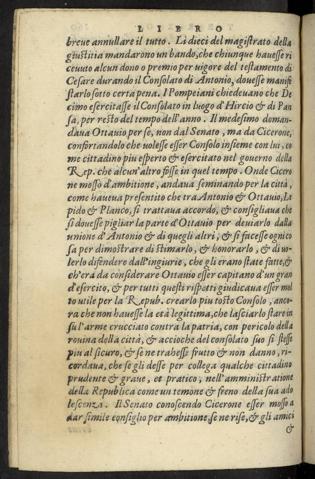 LIBRO
breve annullare il tutto. Li dieci del magistrato della
giustitia mandarono un bando, che chiunque hauesse ri
ceuuto alcun dono o premio per vigore del testamento di
Cesare durando il Consolato di Antonio, douesse manife
starlo sotto certa pena. I Pompeiani chiedeuano che De
cimo esercitasse il Consolato in luogo d'Hircio & di Pan
sa, per resto del tempo dell'anno. Il medesimo doman-
daua Ottauio per se, non dal Senato, ma da Cicerone,
confortandolo che uolesse esser Consolo insieme con lui, co
me cittadino piu esperto & esercitato nel gouerno della
Rep. che alcun'altro fosse in quel tempo. Onde Cicero
ne mosso d'ambitione, andaua seminando per la città,
come haueua presentito che tra Antonio & Ottauio, Le
pido & Planco, si trattaua accordo, & consigliaua che
si douesse pigliar la parte d'Ottauio per deuiarlo dalla
unione d'Antonio & di quegli altri, & si facesse ognico
sa per dimostrare di stimarlo, & honorarlo, & di uo-
lerlo difendere dall'ingiurie, che gli erano state fatte, &
ch'era da considerare Ottauio esser capitano d'un gran
d'esercito, & per tutti questi rispetti giudicaua esser mol
to utile per la Repub. crearlo piu tosto Consolo, anco-
ra che non hauesse la età legittima, che lasciarlo stare in
su l'arme crucciato contra la patria, con pericolo della
rouina della città, & accioche del consolato suo si stesse
piu al sicuro, & se ne trahesse frutto & non danno, ri-
cordaua, che se gli desse per collega qualche cittadino
prudente & graue, et pratico, nell'amministratione
della Republica come un temone & freno della sua ado
lescenza. Il Senato conoscendo Cicerone esser mosso a
dar simile consiglio per ambitione, se ne rise, & gli amici
&